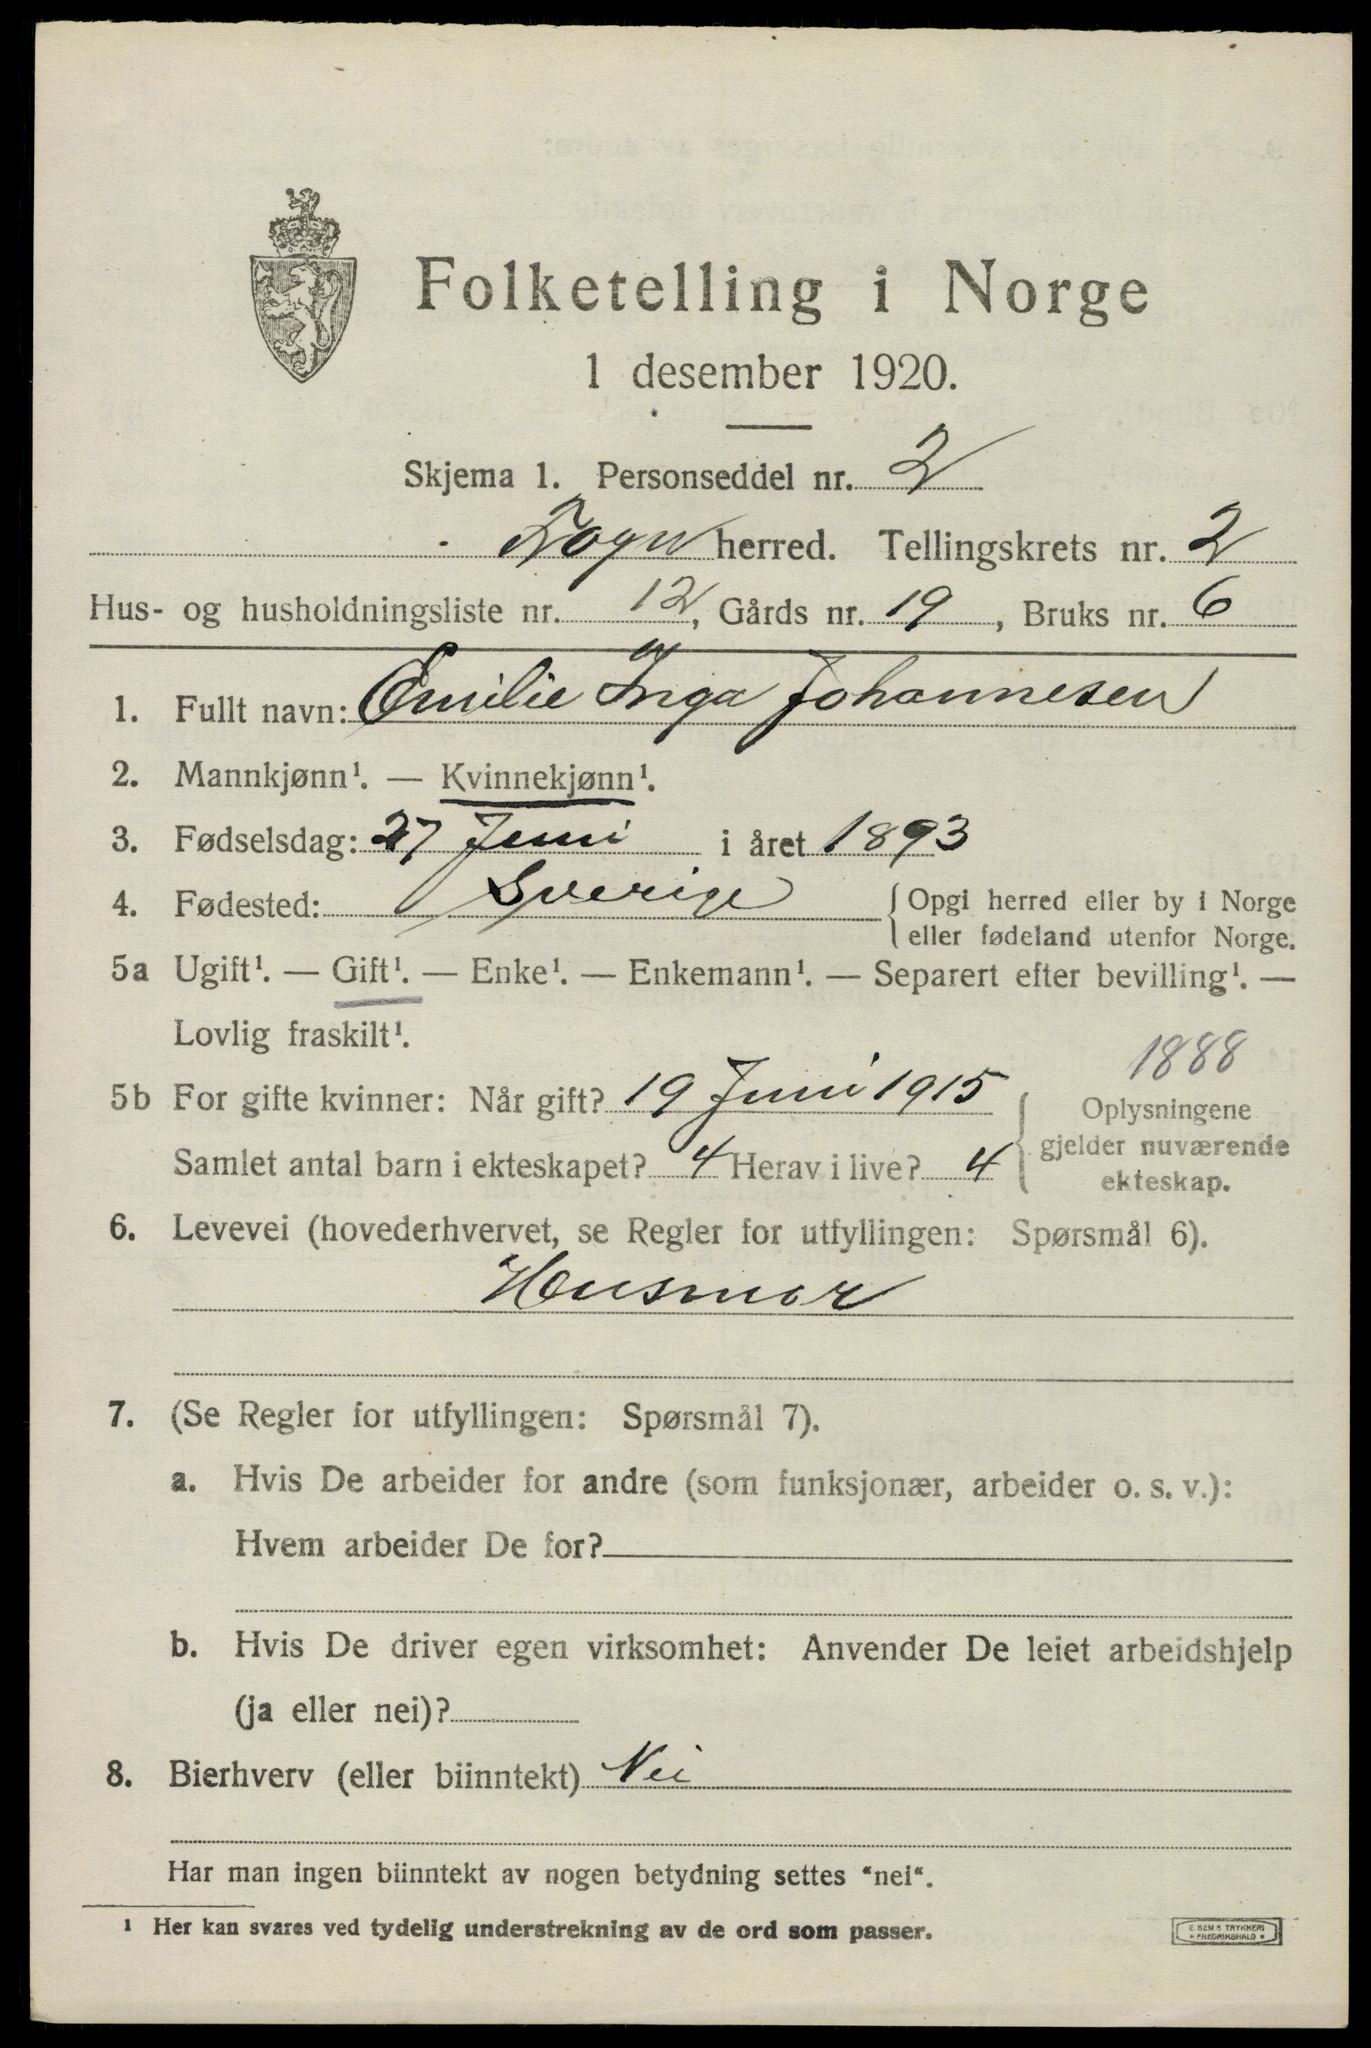 Folketelling i Norge
1 desember 1920.
Skjema 1. Personseddel nr. 2
Togn herred. Tellingskrets nr. 2
Hus- og husholdningsliste nr. 12, Gårds nr. 19, Bruks nr. 6
1. Fullt navn: Emilie Inga Johannesen
2. Mannkjønn¹. — Kvinnekjønn¹.
3. Fødselsdag: 27 Juni i året 1893
4. Fødested: Sverige {Opgi herred eller by i Norge
eller fødeland utenfor Norge.
5a Ugift¹. — Gift¹. — Enke¹. — Enkemann¹. — Separert efter bevilling¹. —
Lovlig fraskilt¹.
1888
5b For gifte kvinner: Når gift? 19 Juni 1915 { Oplysningene
gjelder nuværende
Samlet antal barn i ekteskapet? 4 Herav i live? 4
ekteskap.
6. Levevei (hovederhvervet, se Regler for utfyllingen: Spørsmål 6).
Husmor
7. (Se Regler for utfyllingen: Spørsmål 7).
a. Hvis De arbeider for andre (som funksjonær, arbeider o. s. v.):
Hvem arbeider De for?
b. Hvis De driver egen virksomhet: Anvender De leiet arbeidshjelp
(ja eller nei)?
8. Bierhverv (eller biinntekt) Nei
Har man ingen biinntekt av nogen betydning settes "nei".
1 Her kan svares ved tydelig understrekning av de ord som passer.
E. SEM'S TRYKKERI
• FREDRIKSHALD •